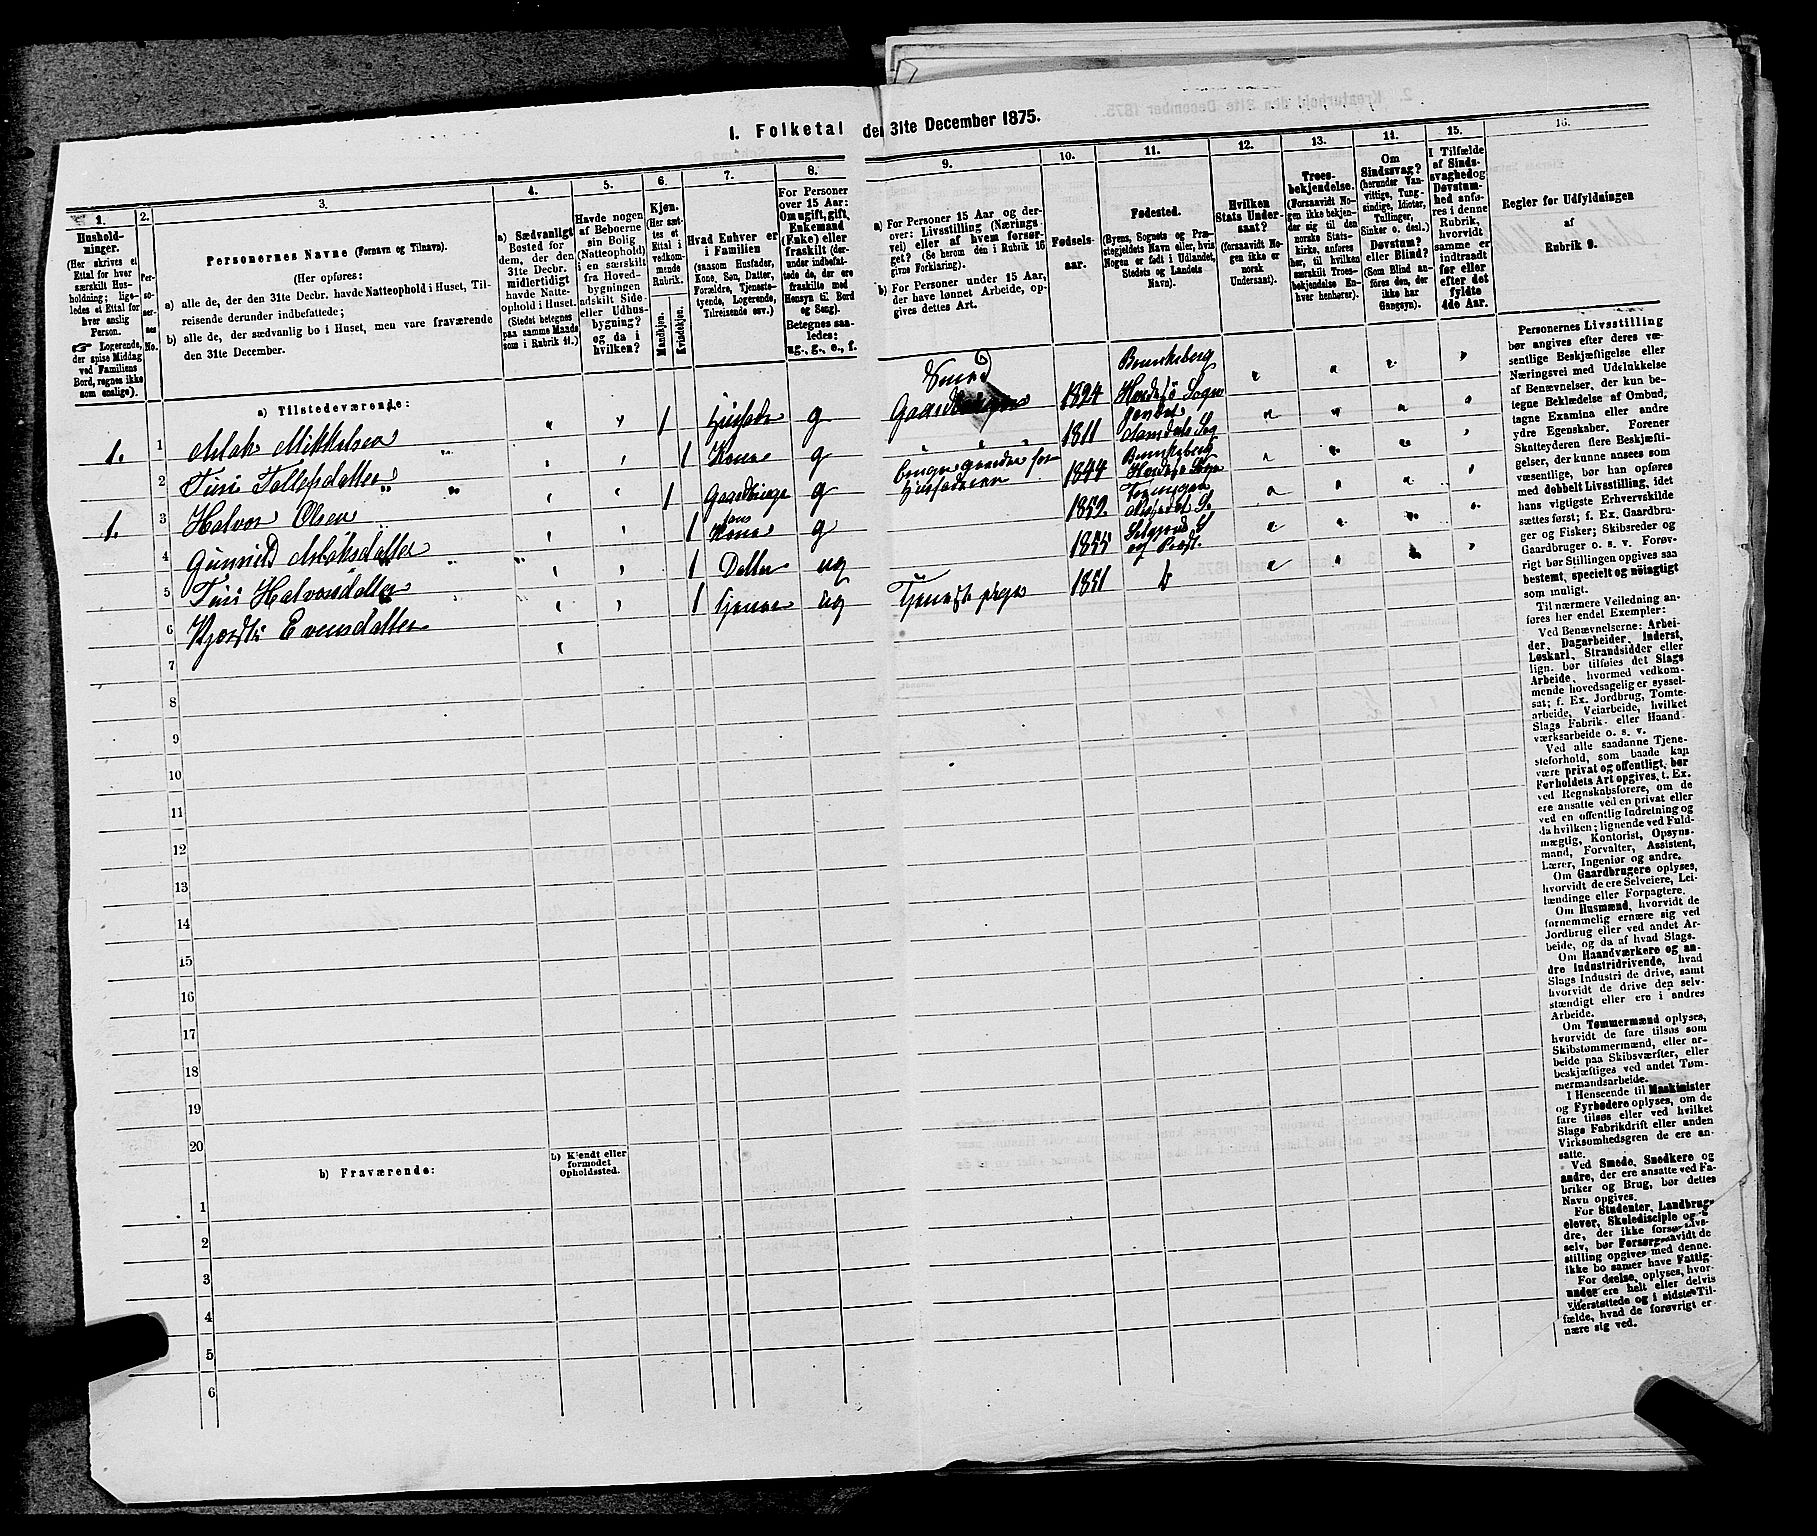 1. Folketal den 31te December 1875.
1.
Hushold-
ninger.
(Her skrives et
Ettal for hver
særskilt Hus-
holdning; lige-
ledes et Ettal for
hver enslig
Person.
☞ Logerende,
der spise Middag
ved Familiens
Bord, regnes ikke
som enslige).
2.
Per-
so-
ner-
nes
No.
3.
Personernes Navne (Fornavn og Tilnavn).
(Her opføres:
a) alle de, der den 31te Decbr. havde Natteophold i Huset, Til-
reisende derunder indbefattede;
b) alle de, der sædvanlig bo i Huset, men vare fraværende
den 31te December.
4.
a) Sædvanligt
Bosted for
dem, der den
31te Decbr.
midlertidigt
havde Natte-
ophold i Huset.
(Stedet betegnes
paa samme Maade
som i Rubrik 11.)
5.
Havde nogen
af Beboerne
sin Bolig
(Natteophold)
i en særskilt
fra Hoved-
bygningen
adskilt Side-
eller Udhus-
bygning?
og da i
hvilken?
6.
Kjøn.
(Her sæt-
tes et
Ettal i
vedkom-
mende
Rubrik.
Mandkjøn.
Kvindekjøn.
7.
Hvad Enhver er
i Familien
(saasom Husfader,
Kone, Søn, Datter,
Forældre, Tjeneste-
tyende, Logerende,
Tilreisende osv.)
8.
For Personer
over 15 Aar:
Om ugift, gift,
Enkemand
(Enke) eller
fraskilt (der-
under indbefat-
tede de, der ere
fraskilte med
Hensyn til Bord
og Seng).
Betegnes saa-
ledes:
ug., g., e., f.
9.
a) For Personer 15 Aar og der-
over: Livsstilling (Nærings-
vei) eller af hvem forsør-
get? (Se herom den i Rubrik 16
givne Forklaring).
b) For Personer under 15 Aar,
der have lønnet Arbeide, op-
gives dettes Art.
10.
Fødsels-
aar.
11.
Fødested.
(Byens, Sognets og Præ-
stegjeldets Navn eller, hvis
Nogen er født i Udlandet,
Stedets og Landets
Navn).
12.
Hvilken
Stats Under-
saat?
(forsaavidt No-
gen ikke er
norsk
Undersaat).
13.
Troes-
bekjendelse.
(Forsaavidt No-
gen ikke bekjen-
der sig til den
norske Stats-
kirke, anføres
her, til hvilken
særskilt Troes-
bekjendelse En-
hver henhører).
14.
Om
Sindssvag?
(herunder Van-
vittige, Tung-
sindige, Idioter,
Tullinger,
Sinker o. desl.)
Døvstum?
eller Blind?
(Som Blind an-
føres den, der
ikke har
Gangsyn).
15.
I Tilfælde
af Sinds-
svaghed og
Døvstum-
hed anfø-
res i denne
Rubrik,
hvorvidt
samme er
indtraadt
før eller
efter det
fyldte
4de Aar.
16.
Regler for Udfyldningen
af
Rubrik 9.
a) Tilstedeværende:
1. 1 Aslak Mikkelsen " " 1 Husfader g Smed Gaardbruger 1824 Brunkeberg Hvidesø Sogn
2 Turi Tollefsdatter " " 1 Kone g 1811
1. 3 Halvor Olsen " " 1 Gaardbruger g 1844 Brunkeberg
4 Gunnild Aslaksdatter " " 1 hans Kone g 1852.
5 Turi Halvorsdatter " " 1 Datter ug 1855
6 Kjersti Evensdatter " " 1 tjener ug Tjenestepige 1851
7
8
9
10
11
12
13
14
15
16
17
18
19
20
b) Fraværende:
b) Kjendt eller
formodet
Opholdssted.
1
2
3
4
5
6
Personernes Livsstilling
bør angives efter deres væ-
sentlige Beskjæftigelse eller
Næringsvei med Udelukkelse
af Benævnelser, der kun be-
tegne Beklædelse af Ombud,
tagne Examina eller andre
ydre Egenskaber. Forener
Skatteyderen flere Beskjæfti-
gelser, der kunne ansees som
væsentlige, bør han opføres
med dobbelt Livsstilling, idet
hans vigtigste Erhvervskilde
sættes først; f. Ex. Gaardbru-
ger og Fisker; Skibsreder og
Gaardbruger o. s. v. Forøv-
rigt bør Stillingen opgives saa
bestemt, specielt og nøiagtigt
som muligt.
Til nærmere Veiledning an-
føres her endel Exempler:
Ved Benævnelserne: Arbei-
der, Dagarbeider, Inderst,
Løskarl, Strandsidder eller
lign. bør tilføies det Slags
Arbeide, hvormed vedkom-
mende hovedsagelig er syssel-
sat; f. Ex. Jordbrug, Tomte-
arbeide, Veiarbeide, hvilket
Slags Fabrik- eller Haand-
værksarbeide o. s. v.
Ved alle saadanne Tjene-
steforhold, som baade kan
være privat og offentligt, bør
Forholdets Art opgives, t. Ex.
ved Regnskabsførere, om de
ere ansatte ved en privat eller
ved en offentlig Indretning og
da hvilken; lignende ved Fuld-
mægtig, Kontorist, Opsyns-
mand, Forvalter, Assistent,
Lærer, Ingeniør og andre.
Om Gaardbrugere oplyses,
hvorvidt de ere Selveiere, Lei-
lændinge eller Forpagtere.
Om Husmænd, hvorvidt de
fornemmelig ernære sig ved
Jordbrug eller ved andet Ar-
beide, og da af hvad Slags.
Om Haandværkere og an-
dre Industridrivende, hvad
Slags Industri de drive, samt
hvorvidt de drive den selv-
stændigt eller ere i andres
Arbeide.
Om Tømmermænd oplyses,
hvorvidt de fare tilsøs som
Skibstømmermænd, eller ar-
beide paa Skibsværfter, eller
beskjæftiges ved andet Tøm-
mermandsarbeide.
I Henseende til Maskinister
og Fyrbødere oplyses, om de
fare tilsøs eller ved hvilket
Slags Fabrikdrift eller anden
Virksomhedsgren de ere an-
satte.
Ved Smede, Snedkere og
andre, der ere ansatte ved Fa-
briker og Brug, bør dettes
Navn opgives.
For Studenter, Landbrugs-
elever, Skoledisciple og an-
dre, der ikke forsørge sig
selv, bør Forsørgerens Livs-
stilling opgives, forsaavidt de
ikke bo sammen med denne.
For dem, der have Fattig-
understøttelse, oplyses, hvor-
vidt de ere helt eller delvis
understøttede og i sidste Til-
fælde, hvad de forøvrigt er-
nære sig ved.